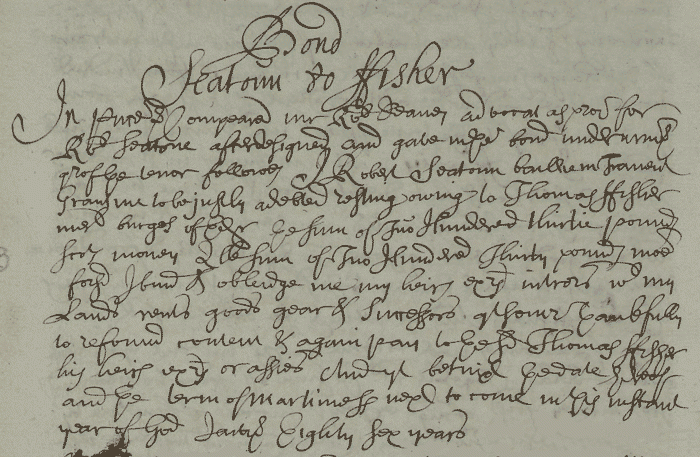 Bond
Seatoun to ffisher
In pnce compeared mr Robt Deanes advocat as pror for
Robt Seatone afterdesigned and gave in the bond underwrin
qrof the tenor followes I Robert Seatoun baillie in Tranent
Grants me to be justly adebted resting owing to Thomas ffisher
mert burges of Edr the sum of Two Hundered thirtie pounds
scots money Qlk sum of Two Hundered thirty pounds mo
forsd I bind & obleidge me my heirs exrs intrors wt my
Lands rents goods gear & Successors qtsomr thankfully
to refound content & again pay to the sd Thomas ffisher
his heirs exrs or assies And yt betwixt the date hereof
and the term of Martimess next to come in this instant
year of God Jaivjc Eighty sex years